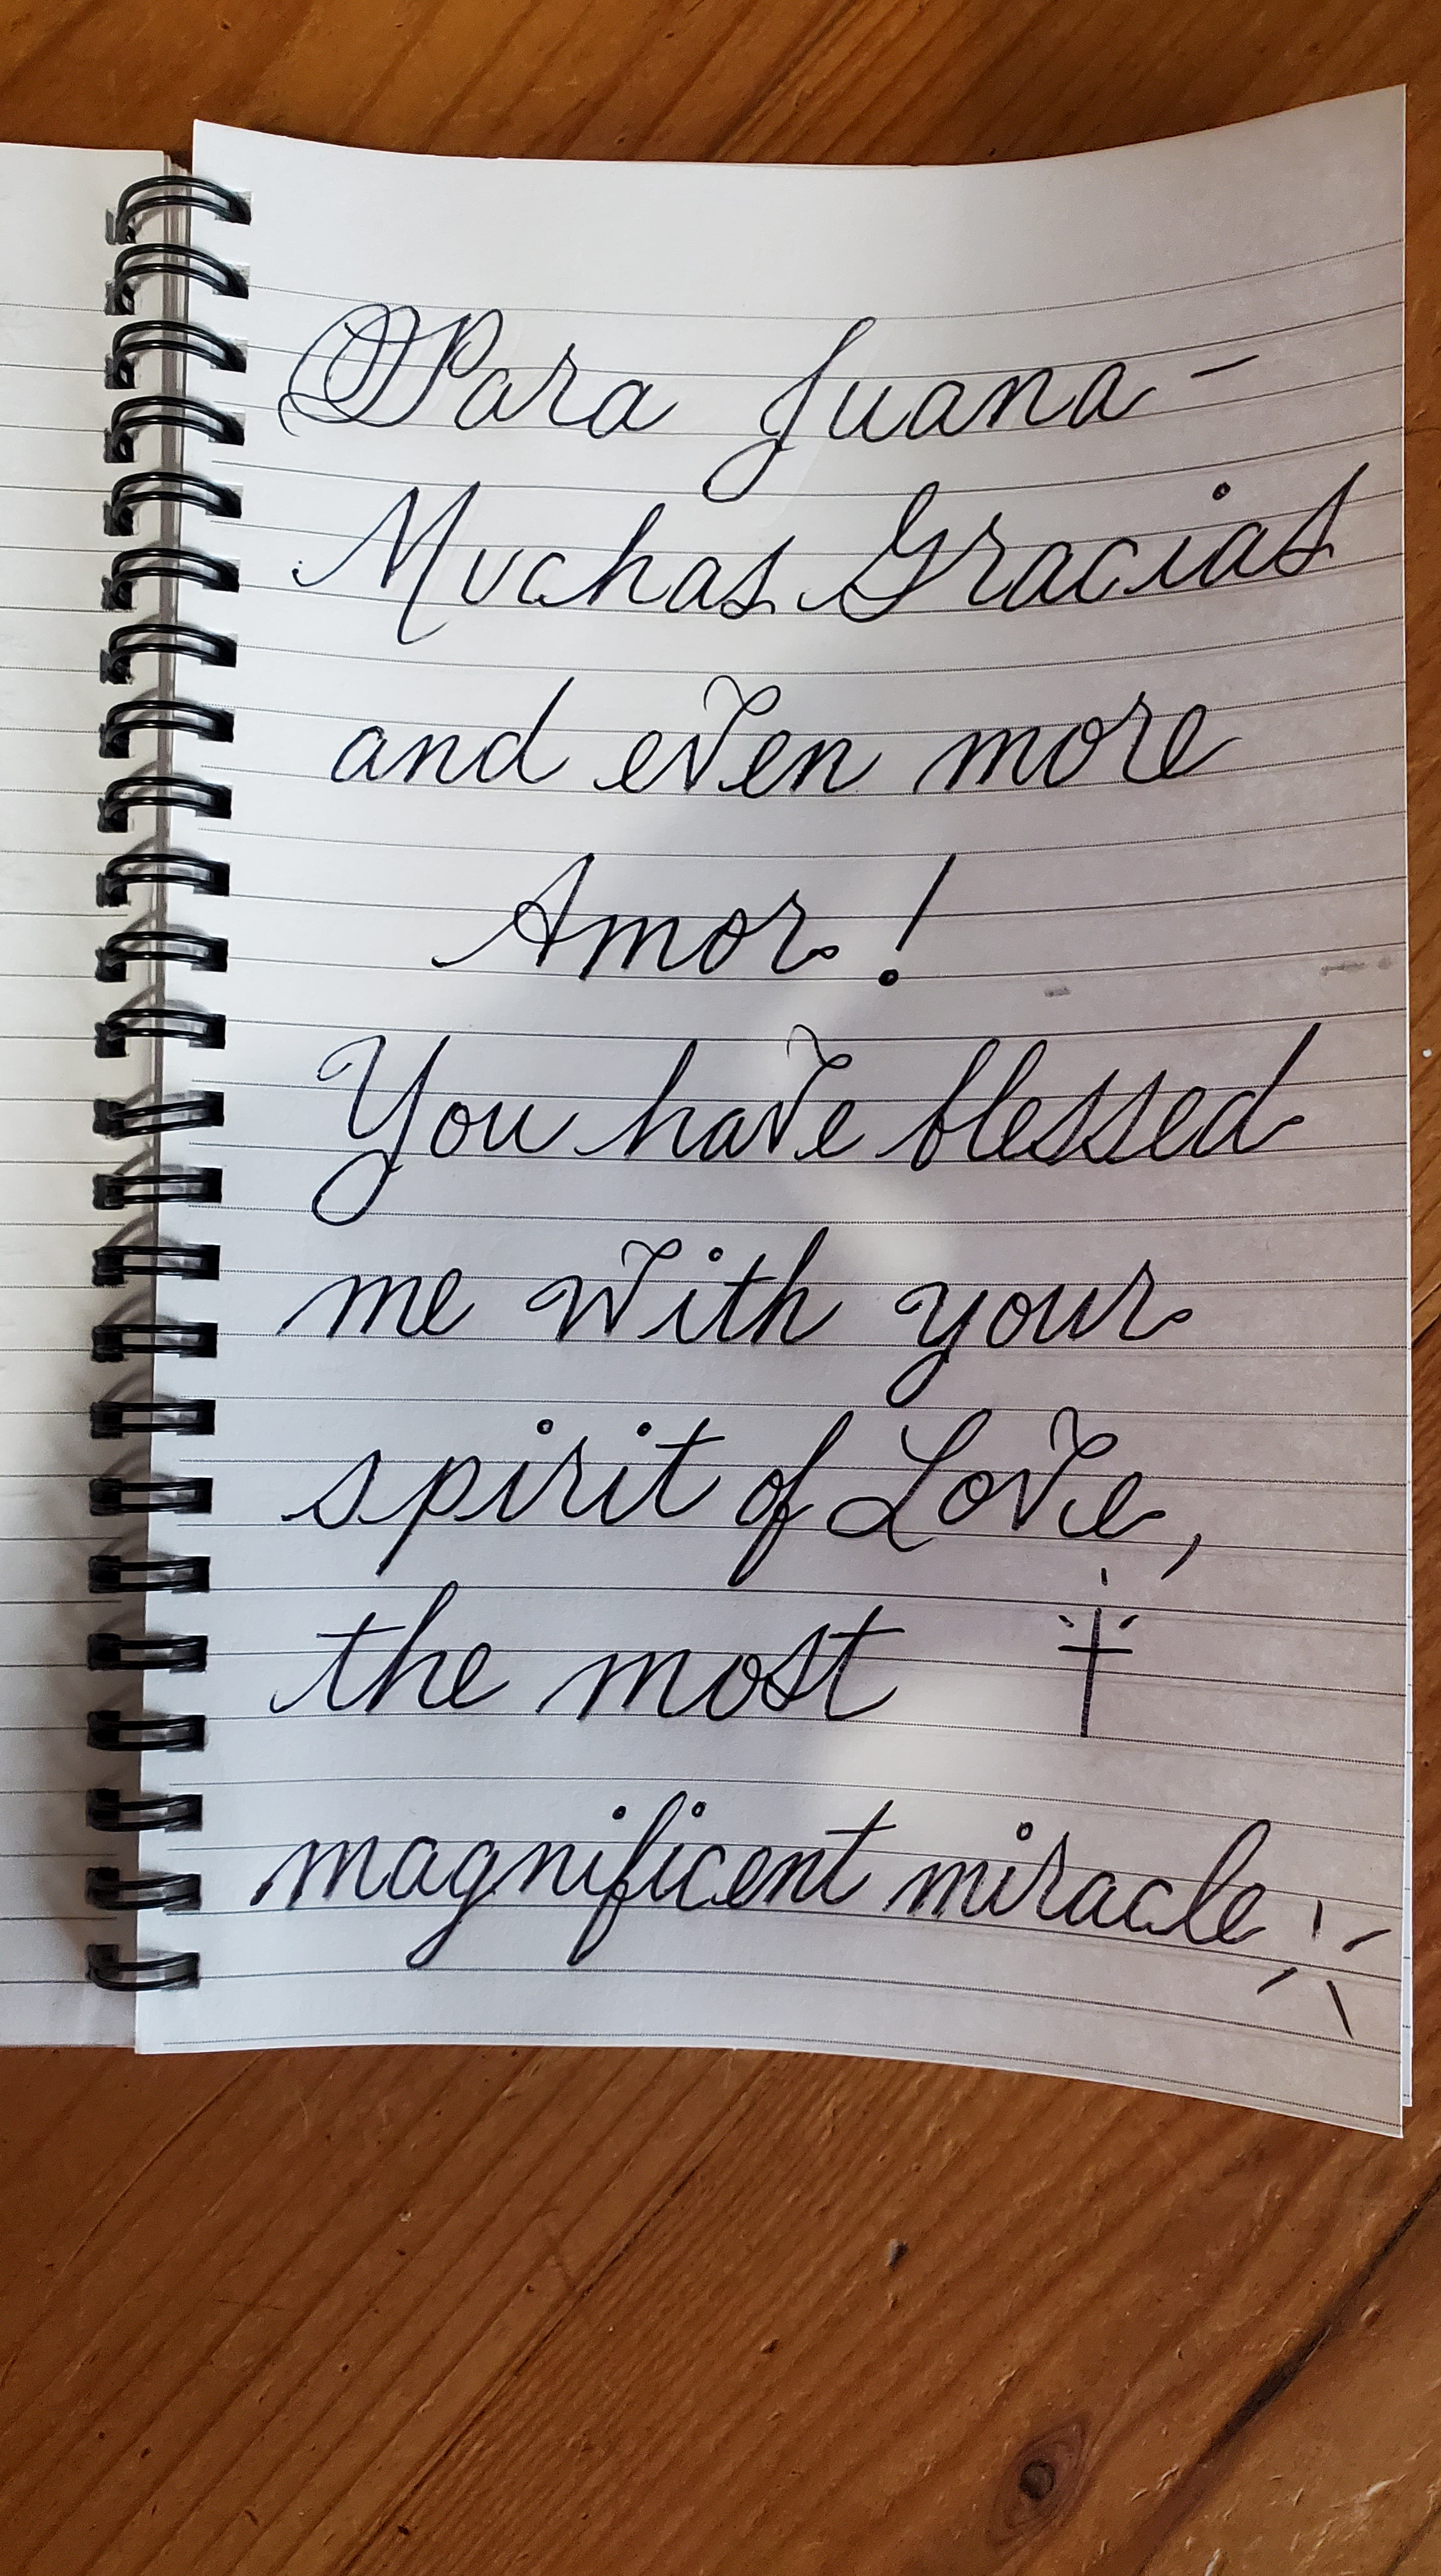 Para Juana -
Muchas Gracias
and even more
Amor!
You have blessed
me with your
spirit of Love,
the most
magnificent miracle